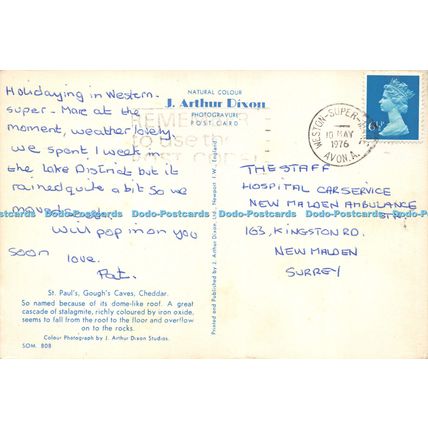 NATURAL COLOUR
J. Arthur Dixon
PHOTOGRAVURE
POST CARD
Holidaying in Western-
super-Mare at the
moment, weather lovely,
we spent 1 week in
the Lake District but it
rained quite a bit so we
moved
Will pop in on you
soon love.
Pat.
REMEMBER
to use the
POST CODE
WESTON-SUPER-MARE
10 MAY
1976
AVON.A.
6½P
THE STAFF
HOSPITAL CAR SERVICE
NEW MALDEN AMBULANCE
STN
163, KINGSTON RD.
NEW MALDEN
SURREY
Dodo-Postcards Dodo-Postcards Dodo-Postcards Dodo-Postcards Dodo-Postcards Dodo-Postcards
Printed and Published by J. Arthur Dixon Ltd., Newport I.W., England
St. Paul's, Gough's Caves, Cheddar.
So named because of its dome-like roof. A great
cascade of stalagmite, richly coloured by iron oxide,
seems to fall from the roof to the floor and overflow
on to the rocks.
Colour Photograph by J. Arthur Dixon Studios.
SOM. 808